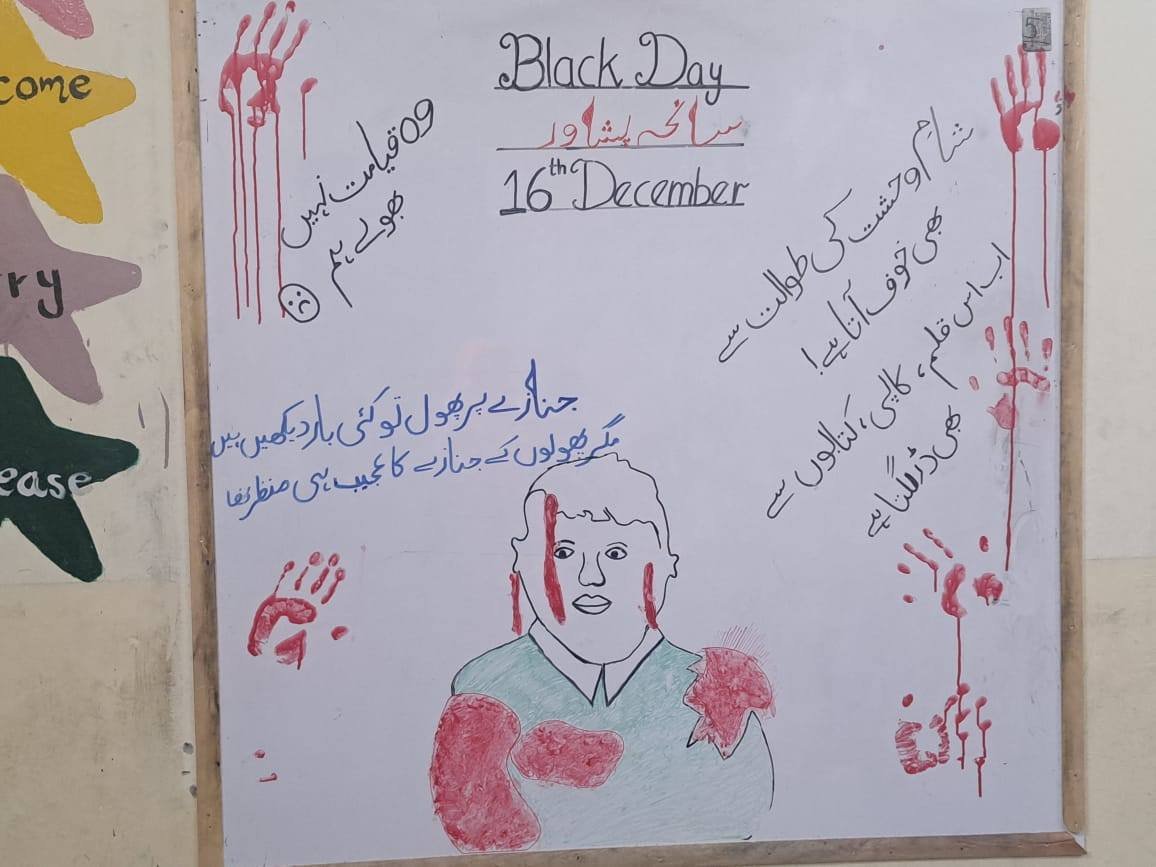 come
ry
ease
5
Black Day
سانحہ پشاور
16th December
وہ قیامت نہیں
بھولے ہم
شامِ وحشت کی طوالت سے
بھی خوف آتا ہے!
اب اس قلم، کاپی، کتابوں سے
بھی ڈر لگتا ہے
جنازے پر پھول تو کئی بار دیکھیں ہیں
مگر پھولوں کے جنازے کا عجیب ہی منظر تھا